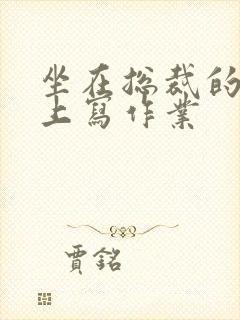 坐在总裁的
上寫作業
賈銘